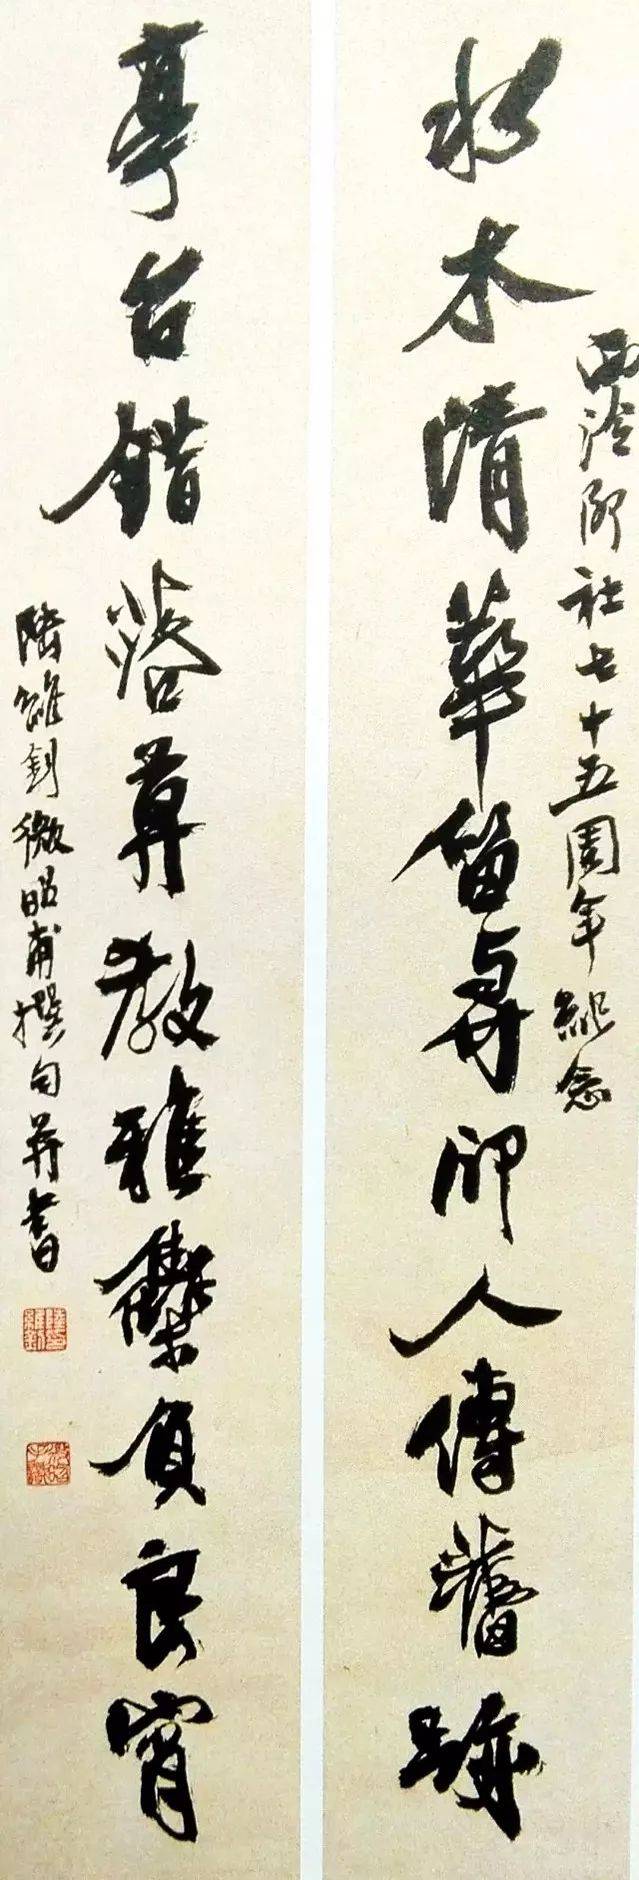 西泠印社七十五周年紀念
水木清華留與印人傳舊跡
亭台錯落莫教雅集負良宵
陸維釗微昭甫撰句并書